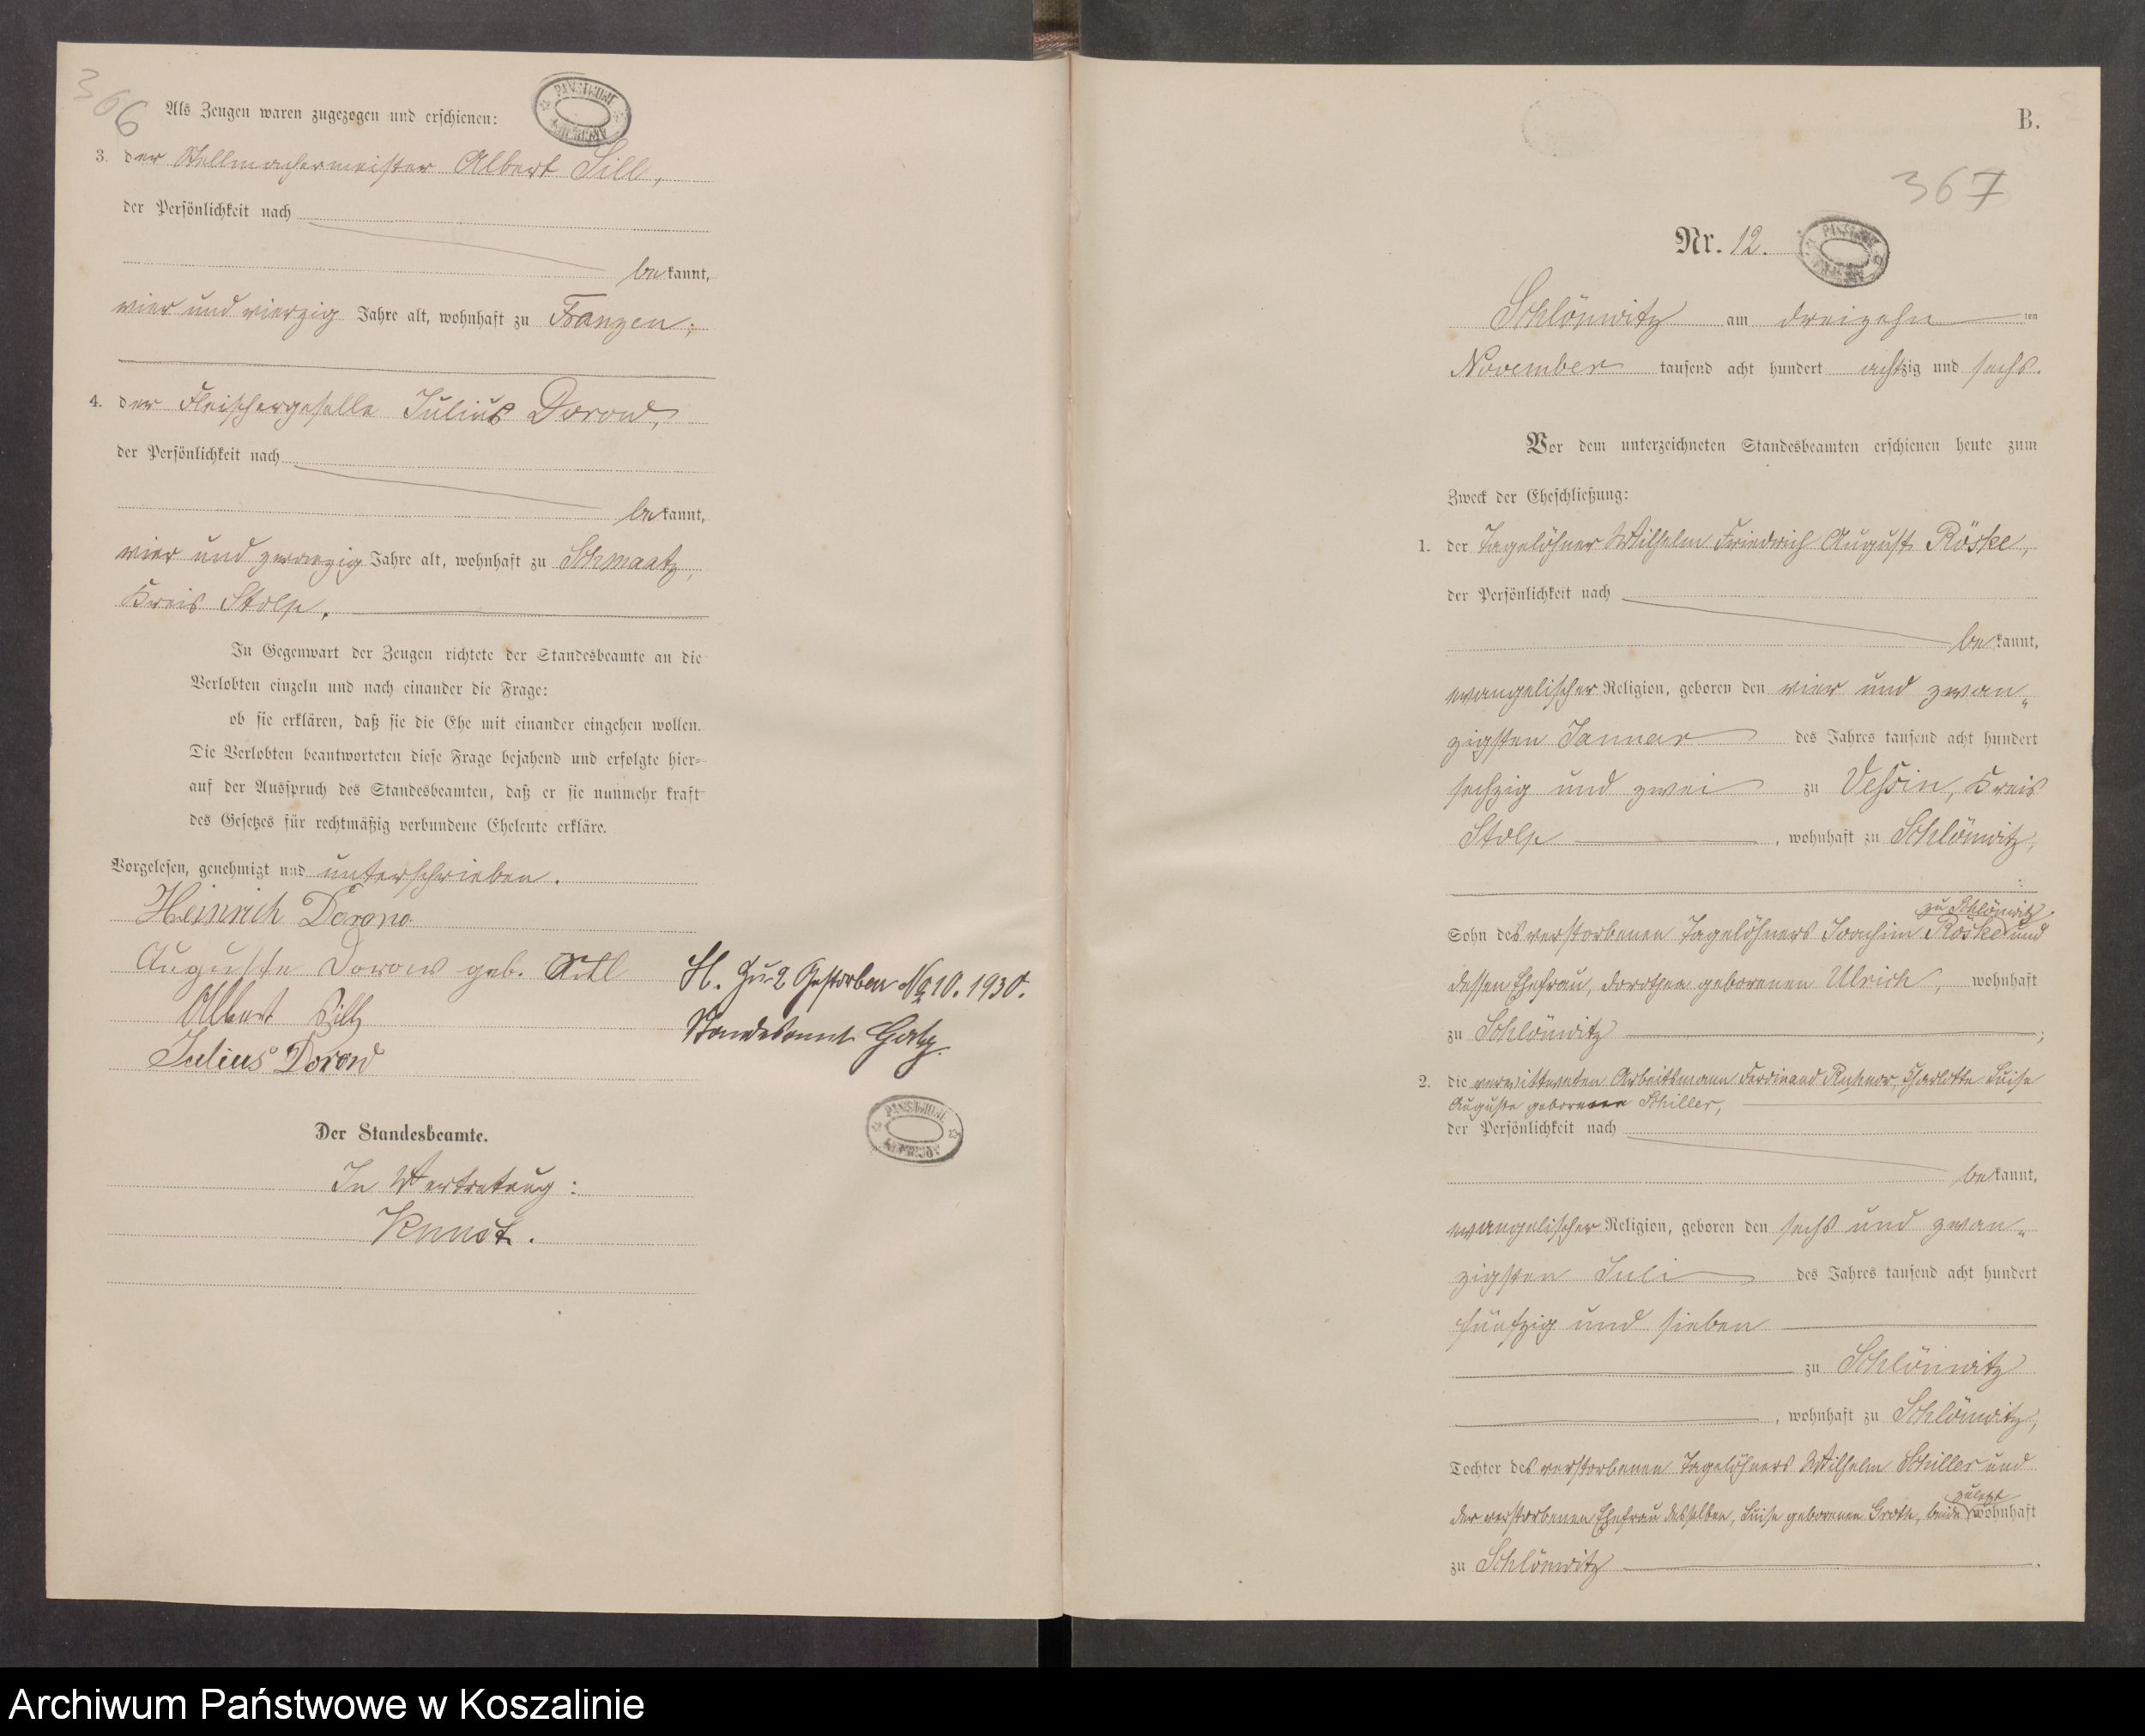 366
Als Zeugen waren zugezogen und erschienen:
3. der Stellmachermeister Albert Sill,
der Persönlichkeit nach
bekannt,
vier und vierzig Jahre alt, wohnhaft zu Franzen;
4. der Fleischergeselle Julius Dorow,
der Persönlichkeit nach
bekannt,
vier und zwanzig Jahre alt, wohnhaft zu Schmaatz,
Kreis Stolp.
In Gegenwart der Zeugen richtete der Standesbeamte an die
Verlobten einzeln und nach einander die Frage:
ob sie erklären, daß sie die Ehe mit einander eingehen wollen.
Die Verlobten beantworteten diese Frage bejahend und erfolgte hier-
auf der Ausspruch des Standesbeamten, daß er sie nunmehr kraft
des Gesetzes für rechtmäßig verbundene Eheleute erkläre.
Vorgelesen, genehmigt und unterschrieben.
Heinrich Dorow
Auguste Dorow geb.
Albert Sill
Julius Dorow
H. Zu 2 Gestorben No 10. 1930.
Standesamt Gatz.
Der Standesbeamte.
In Vertretung:
Kunst.
PAŃSTWOWE ARCHIWUM
B.
367
Nr. 12.
Schlönwitz am dreizehnten
November tausend acht hundert achtzig und sechs.
Vor dem unterzeichneten Standesbeamten erschienen heute zum
Zweck der Eheschließung:
1. der Tagelöhner Wilhelm Friedrich August Röske,
der Persönlichkeit nach
bekannt,
evangelischer Religion, geboren den vier und zwan-
zigsten Januar des Jahres tausend acht hundert
sechzig und zwei zu Vessin, Kreis
Stolp, wohnhaft zu Schlönwitz,
zu Schlönwitz
Sohn des verstorbenen Tagelöhners Joachim Röske und
dessen Ehefrau, Dorothea geborenen Ulrich, wohnhaft
zu Schlönwitz;
2. die verwittweten Arbeitsmann Ferdinand, Charlotte Luise
Auguste geborene Schiller,
der Persönlichkeit nach
bekannt,
evangelischer Religion, geboren den sechs und zwan-
zigsten Juli des Jahres tausend acht hundert
fünfzig und sieben
zu Schlönwitz
, wohnhaft zu Schlönwitz,
Tochter des verstorbenen Tagelöhners Wilhelm Schiller und
zuletzt
der verstorbenen Ehefrau desselben, Luise geborenen Groth, beide wohnhaft
zu Schlönwitz.
Archiwum Państwowe w Koszalinie